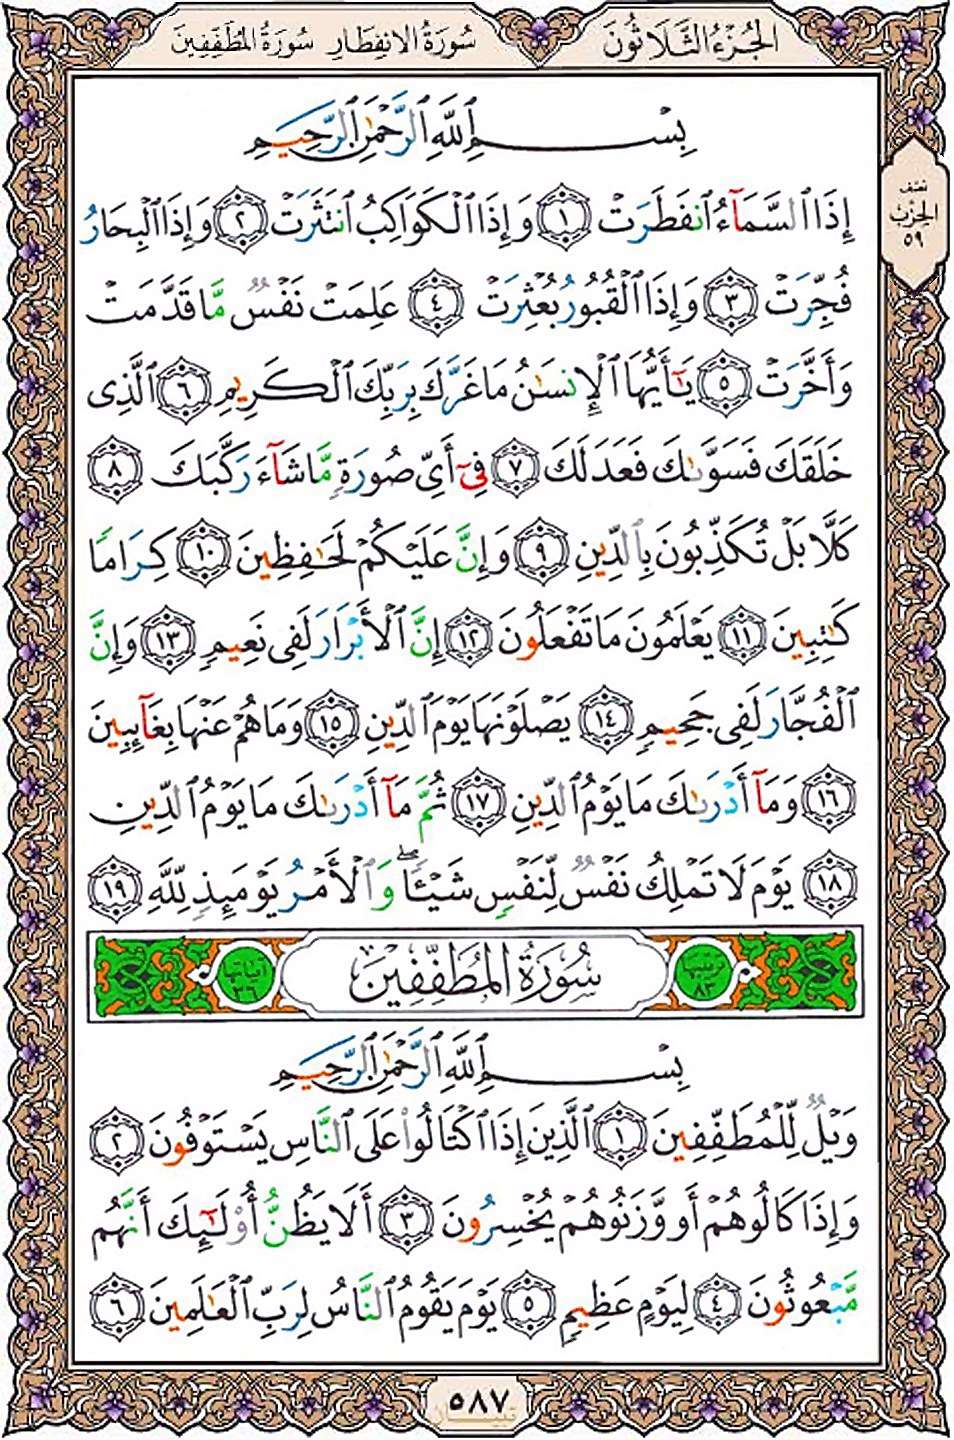 الجُزْءُ الثَّلَاثُونَ سُورَةُ الانفِطَارِ سُورَةُ المُطَفِّفِينَ
بِسْمِ ٱللَّهِ ٱلرَّحْمَٰنِ ٱلرَّحِيمِ
إِذَا ٱلسَّمَآءُ ٱنفَطَرَتْ ١ وَإِذَا ٱلْكَوَاكِبُ ٱنتَثَرَتْ ٢ وَإِذَا ٱلْبِحَارُ
نصف
الحزب
٥٩
فُجِّرَتْ ٣ وَإِذَا ٱلْقُبُورُ بُعْثِرَتْ ٤ عَلِمَتْ نَفْسٌ مَّا قَدَّمَتْ
وَأَخَّرَتْ ٥ يَٰٓأَيُّهَا ٱلْإِنسَٰنُ مَا غَرَّكَ بِرَبِّكَ ٱلْكَرِيمِ ٦ ٱلَّذِى
خَلَقَكَ فَسَوَّىٰكَ فَعَدَلَكَ ٧ فِىٓ أَىِّ صُورَةٍ مَّا شَآءَ رَكَّبَكَ ٨
كَلَّا بَلْ تُكَذِّبُونَ بِٱلدِّينِ ٩ وَإِنَّ عَلَيْكُمْ لَحَٰفِظِينَ ١٠ كِرَامًا
كَٰتِبِينَ ١١ يَعْلَمُونَ مَا تَفْعَلُونَ ١٢ إِنَّ ٱلْأَبْرَارَ لَفِى نَعِيمٍ ١٣ وَإِنَّ
ٱلْفُجَّارَ لَفِى جَحِيمٍ ١٤ يَصْلَوْنَهَا يَوْمَ ٱلدِّينِ ١٥ وَمَا هُمْ عَنْهَا بِغَآئِبِينَ
١٦ وَمَآ أَدْرَىٰكَ مَا يَوْمُ ٱلدِّينِ ١٧ ثُمَّ مَآ أَدْرَىٰكَ مَا يَوْمُ ٱلدِّينِ
١٨ يَوْمَ لَا تَمْلِكُ نَفْسٌ لِّنَفْسٍ شَيْـًٔا ۖ وَٱلْأَمْرُ يَوْمَئِذٍ لِّلَّهِ ١٩
ترتيبها ٨٣ سُورَةُ المُطَفِّفِينَ آياتها ٣٦
بِسْمِ ٱللَّهِ ٱلرَّحْمَٰنِ ٱلرَّحِيمِ
وَيْلٌ لِّلْمُطَفِّفِينَ ١ ٱلَّذِينَ إِذَا ٱكْتَالُوا۟ عَلَى ٱلنَّاسِ يَسْتَوْفُونَ ٢
وَإِذَا كَالُوهُمْ أَو وَّزَنُوهُمْ يُخْسِرُونَ ٣ أَلَا يَظُنُّ أُو۟لَٰٓئِكَ أَنَّهُم
مَّبْعُوثُونَ ٤ لِيَوْمٍ عَظِيمٍ ٥ يَوْمَ يَقُومُ ٱلنَّاسُ لِرَبِّ ٱلْعَٰلَمِينَ ٦
٥٨٧